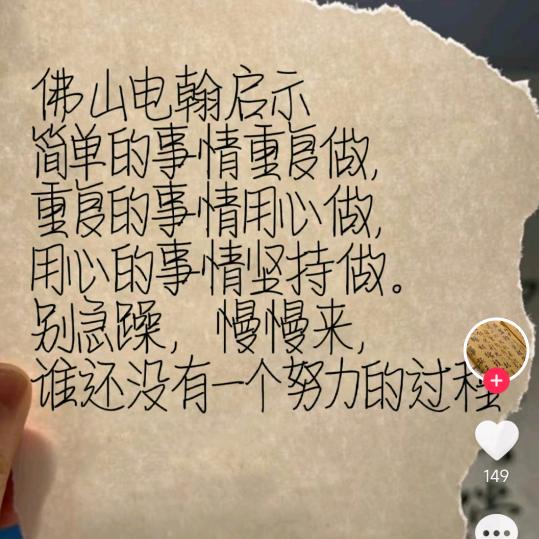 佛山电翰启示
简单的事情重复做,
重复的事情用心做,
用心的事情坚持做。
别急躁,慢慢来,
谁还没有一个努力的过程
149